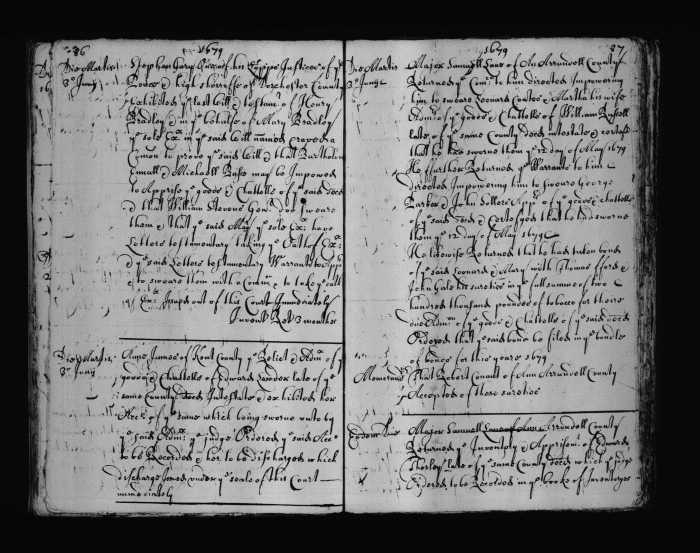 86
1679
Die Martis
3º Junij
Stephen Gary Esq one of his Justices of ye
Peace & high sheriffe of Dorchester County
Exhibited ye last Will & testamt. of Henry
Bradley & in ye behalfe of Mary Bradley
ye sole Exx in ye said Will named craved a
Comon to prove ye said Will & that Bartholm
Ennall & Michaell Basy may be Impowred
to Apprise ye goods & Chattells of ye said decd
& that William Stevens Gent. doe sweare
them & that ye said Mary ye sole Exx have
Letters testamentary taking ye Oath of Exx
& ye said Letters testamentary Warrant to
& to sweare them with a Comn. & to take ye oath
Exx Issued out of this Court Immediately
Invent Ret 3 months
Die Martis
3º Junij
Anne James of Kent County ye Relict & Admx of ye
goods & Chattells of Edward late of ye
same County decd Intestate & exhibited her
Acct. of ye same which being sworne unto by
ye said Admx ye judge Ordered ye said Acct
to be Recorded & her to be discharged which
discharge Issued under ye seale of this Court
immediately
1679
87
Die Martis
3º Junij
Major Samuell Lane of Ann Arrundell County
Returned ye Comn. to him directed Impowering
him to sweare Leonard Coates & Martha his wife
Admx of ye goods & Chattells of William Russell
late of ye same County decd intestate & certifyes
that he has sworne them ye 12 day of May 1679
He further Returned ye Warrant to him
directed Impowering him to sweare George
Barber & John Sollers Appr of ye goods & chattells
of ye said decd & certifyes that he has sworne
them ye 12 day of May 1679
He likewise Returned that he had taken bond
of ye said Leonard & Mary with Thomas fford &
John Gale his sureties in ye full summe of two
hundred thousand pounds of tobacco for theire
due Admn. of ye goods & Chattells of ye said decd
Ordered that ye said bond be filed in ye bundle
of bonds for this yeare 1679
Memorand
That Robert Conant of Ann Arrundell County
Accepted of those sureties
Eodem Die
Major Samuell Lane of Ann Arrundell County
Returned ye Inventory & Apprism. of Edward
late of ye same County decd which ye judge
Ordered to be Recorded in ye booke of Inventoryes